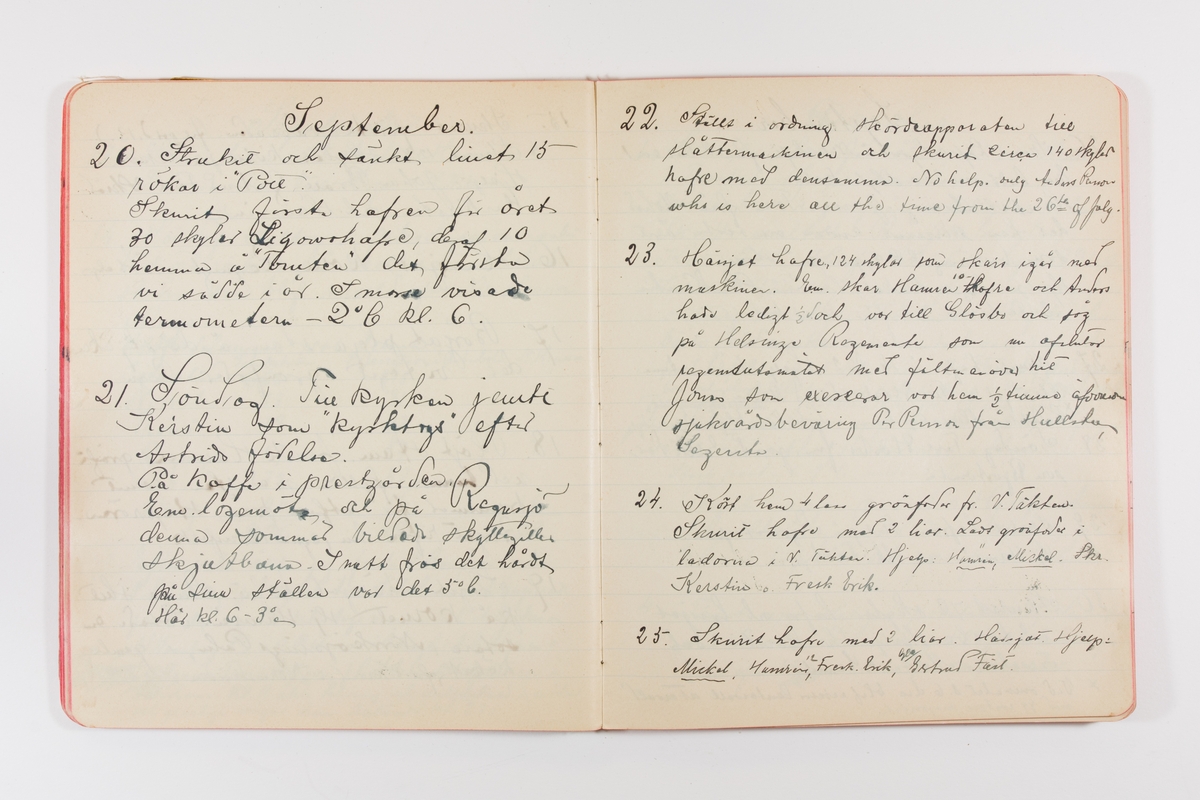 September.
20. Strukit och sänkt linet 15
rökar i "Poll".
Skurit första hafren för året
30 skylar Ligowohafre, deraf 10
hemma å "Tomten" det första
vi sådde i år. I morse visade
termometern – 2° C kl. 6.
21. Söndag. Till kyrkan jemte
Kerstin som "kyrktogs" efter
Astrids födelse.
På kaffe i prestgården.
Em. logemöte, och på Regnsjö
denna sommar bildade skyttegilles
skjutbana. I natt frös det hårdt
på sina ställen var det 5° C.
Här kl. 6 – 3°
22. Ställt i ordning skördeapparaten till
slåttermaskinen och skurit circa 140 skylar
hafre med densamma. No help. only Anders
who is here all the time from the 26th of July.
23. Hässjat hafre, 124 skylar som skars igår med
maskinen. Em. skar Hamrén hafre och Anders
hade ledigt ½ d och var till Glösbo och såg
på Helsinge Regemente som nu
med fältmanöver hit
Jonas som exercerar var hem ½ timme
sjukvårdsbeväring Per Persson från Hullsta,
Segersta.
24. Kört hem 4 lass grönfoder fr. V. Täkten.
Skurit hafre med 2 liar. Lads grönfoder i
ladorna i V. Täkten. Hjelp: Hamrén, Mickel. Skr.
Kerstin. Fresk Erik.
25. Skurit hafre med 2 liar. Hässjat. Hjelp:
Mickel, Hamrén, Fresk. Erik, Gertrud Fäst.